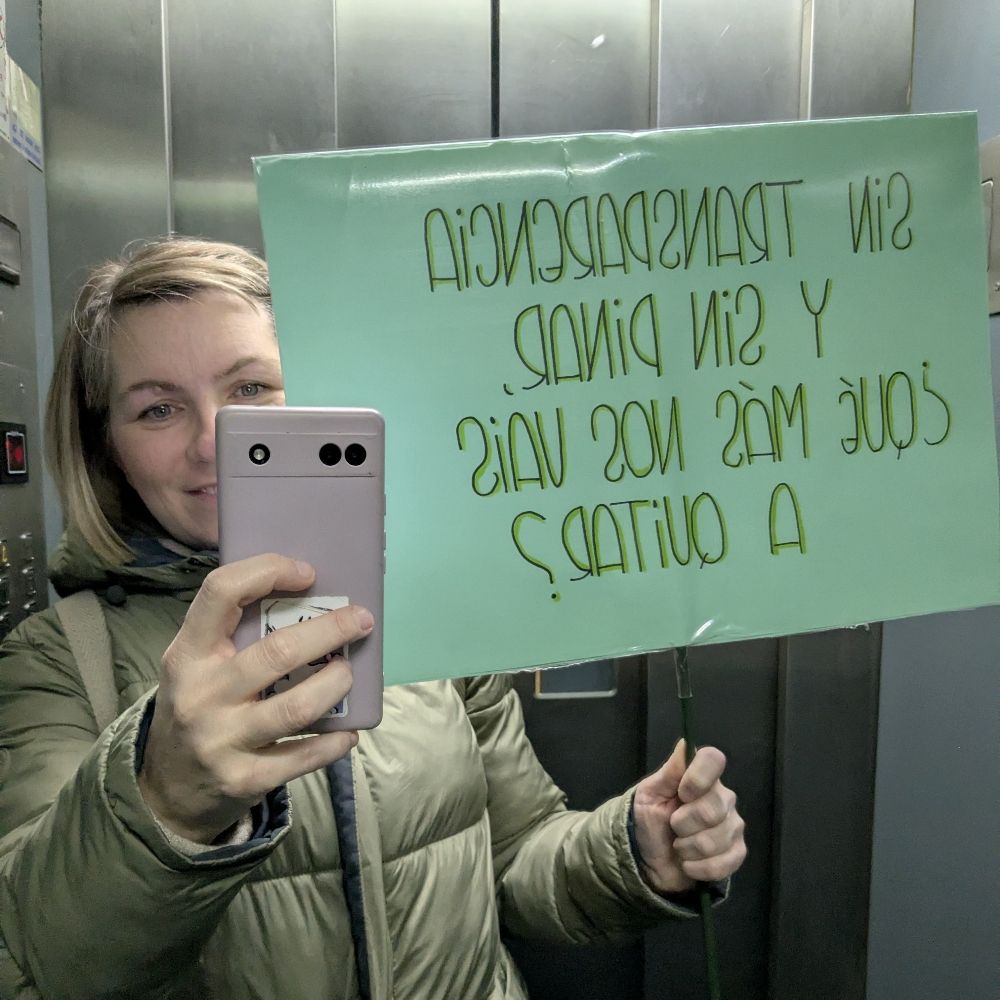 SiN TRANSPARENCiA
Y SiN DiNAR,
¿QUÈ MÀS NOS VÀiS
A QUiTAR?